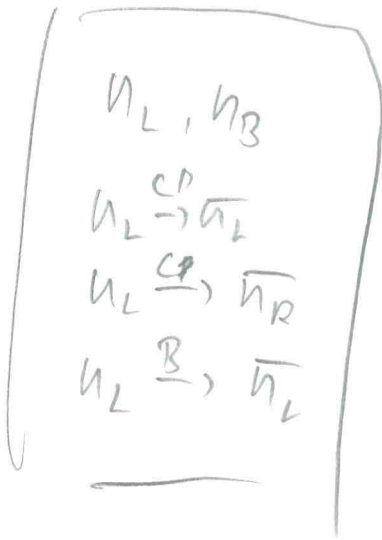 n_L, n_B
n_L →^{CP} \overline{n_L}
n_L →^{CP} \overline{n_R}
n_L →^{B} \overline{n_L}